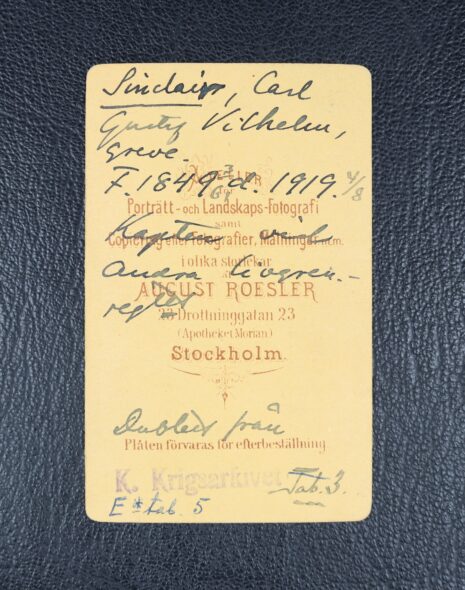 Sinclair, Carl
Gustaf Vilhelm,
greve.
ATELIER
F. 1849 3/6 d. 1919. 4/8
för
Porträtt- och Landskaps-Fotografi
samt
Kapten vid
Copiering efter Fotografier, Målningar m.m.
i olika storlekar
Andra livgren.-
AUGUST ROESLER
reg:tet
23 Drottninggatan 23
(Apotheket Morian)
Stockholm.
Dublett från
Plåten förvaras för efterbeställning.
K. Krigsarkivet Tab. 3.
tab. 5